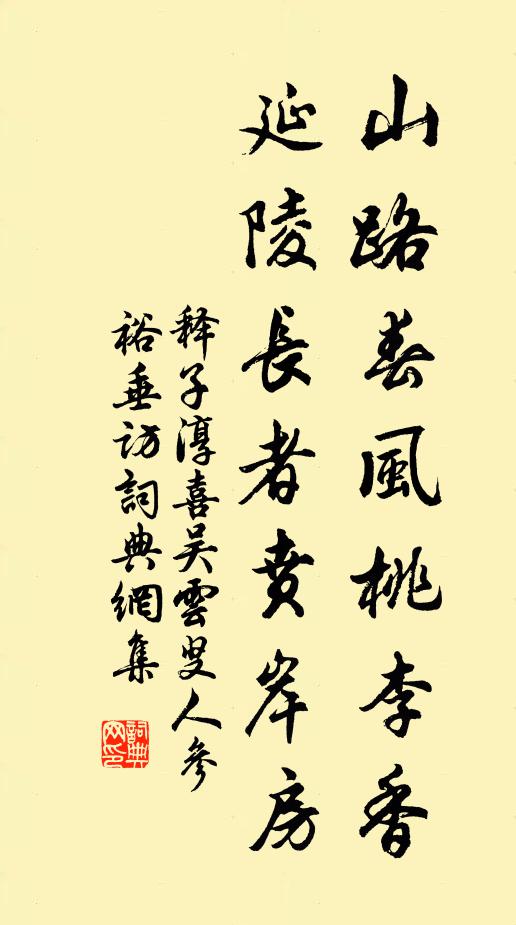 山路春風桃李香
延陵長者賁岸房
释子淳喜吴雲叟人參
裕垂访詞典網集
詞典网印